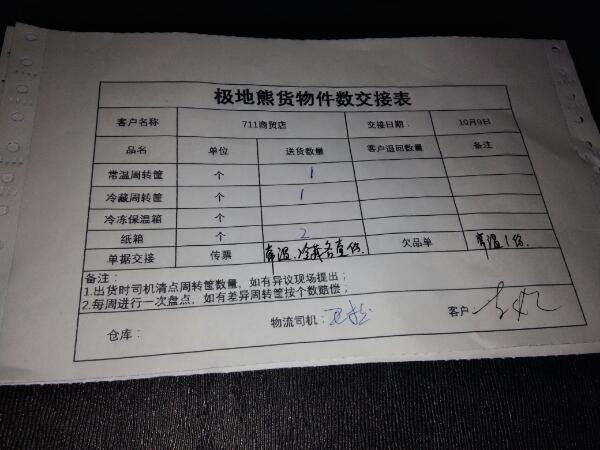 极地熊货物件数交接表
客户名称 711商贸店 交接日期： 10月9日
品名 单位 送货数量 客户退回数量 备注
常温周转筐 个 1
冷藏周转筐 个 1
冷冻保温箱 个
纸箱 个 2
单据交接 传票 常温、冷藏各壹份 欠品单 常温1份
备注：
1.出货时司机清点周转筐数量，如有异议现场提出；
2.每周进行一次盘点，如有差异周转筐按个数赔偿；
仓库： 物流司机： 客户